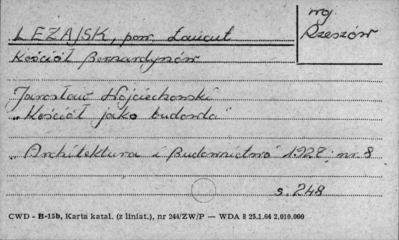 LEŻAJSK, pow. Łańcut
woj Rzeszów
Kościół Bernardynów
Jarosław Wojciechowski
"Kościół jako budowla"
"Architektura i Budownictwo" 1927, nr. 8
s. 248
CWD - B-15b, Karta katal. (z liniat.), nr 244/ZW/P — WDA 8 25.1.64 2.010.000